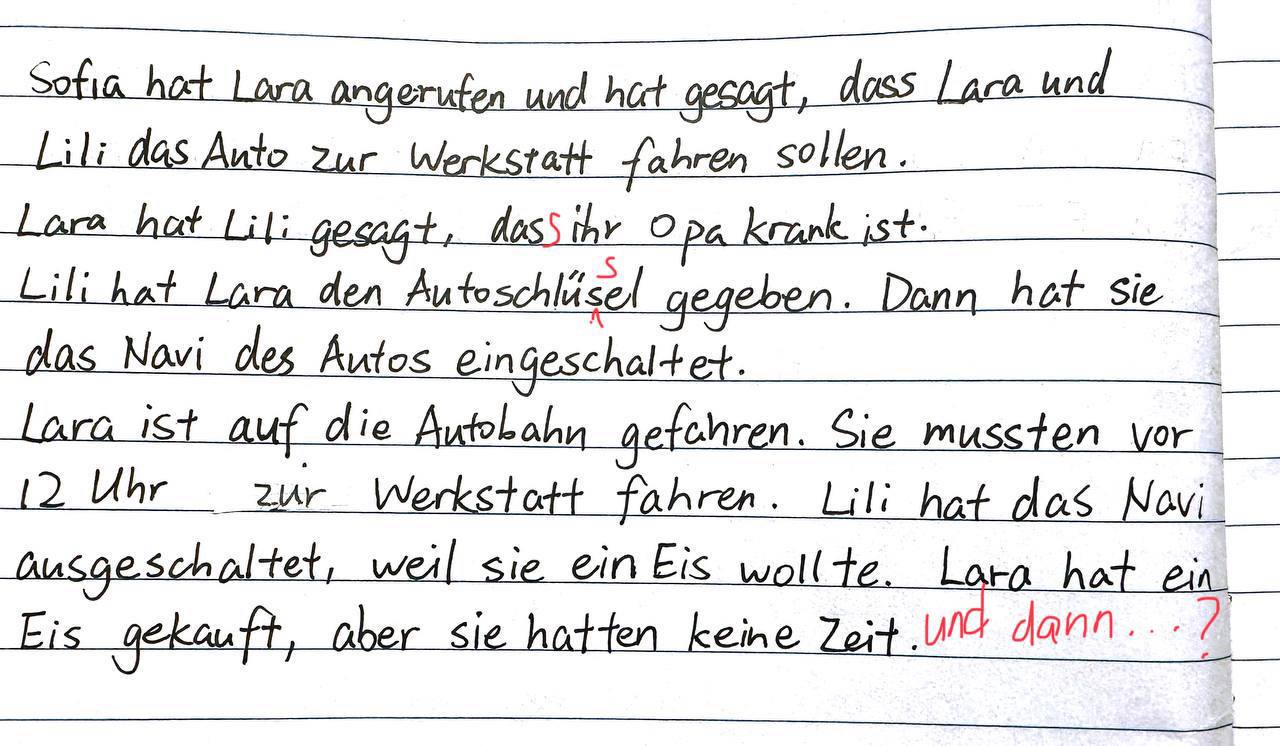 Sofia hat Lara angerufen und hat gesagt, dass Lara und
Lili das Auto zur Werkstatt fahren sollen.
Lara hat Lili gesagt, dass ihr Opa krank ist.
Lili hat Lara den Autoschlüssel gegeben. Dann hat sie
das Navi des Autos eingeschaltet.
Lara ist auf die Autobahn gefahren. Sie mussten vor
12 Uhr zur Werkstatt fahren. Lili hat das Navi
ausgeschaltet, weil sie ein Eis wollte. Lara hat ein
Eis gekauft, aber sie hatten keine Zeit. und dann...?